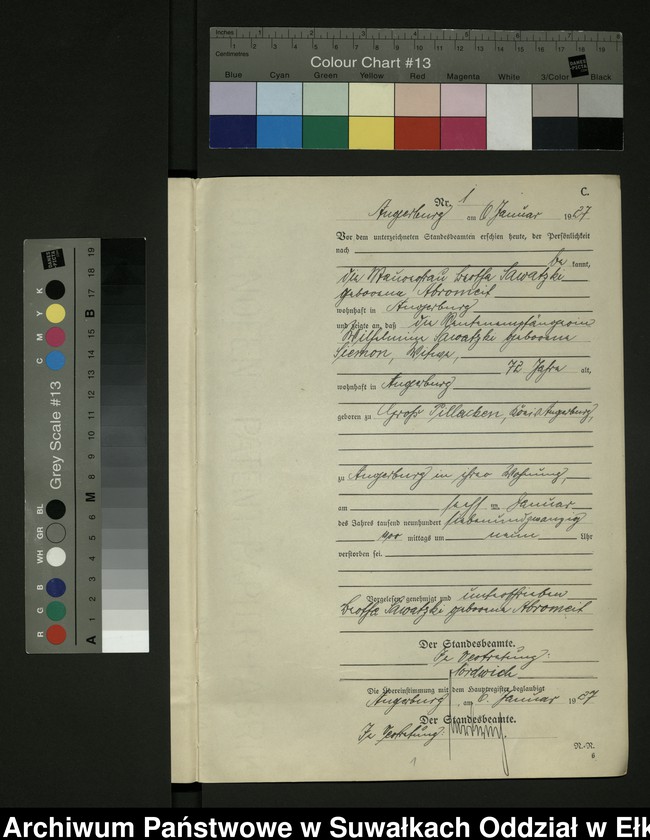 Inches 1 2 3 4 5 6 7 8
Centimetres 1 2 3 4 5 6 7 8 9 10 11 12 13 14 15 16 17 18 19
Colour Chart #13
Blue Cyan Green Yellow Red Magenta White 3/Color Black
Grey Scale #13
C M Y K
R G B WH GR BL
A 1 2 3 4 5 6 M 8 9 10 11 12 13 14 15 B 17 18 19
C.
Nr. 1
Angerburg am 6 Januar 1927
Vor dem unterzeichneten Standesbeamten erschien heute, der Persönlichkeit
nach
be kannt,
die Bauersfrau Bertha Sawatzki
geborene Abromeit
wohnhaft in Angerburg
und zeigte an, daß die Rentenempfängerin
Wilhelmine Sawatzki geborene
Siemon, Witwe,
72 Jahre alt,
wohnhaft in Angerburg
geboren zu Groß Pillacken, Kreis Angerburg,
zu Angerburg in ihrer Wohnung,
am sechsten Januar
des Jahres tausend neunhundert siebenundzwanzig
vor mittags um neun Uhr
verstorben sei.
Vorgelesen, genehmigt und unterschrieben
Bertha Sawatzki geborene Abromeit
Der Standesbeamte.
In Vertretung:
Nordwich
Die Übereinstimmung mit dem Hauptregister beglaubigt
Angerburg, am 6. Januar 1927
Der Standesbeamte.
In Vertretung:
N.-R.
6
1
Archiwum Państwowe w Suwałkach Oddział w Ełk